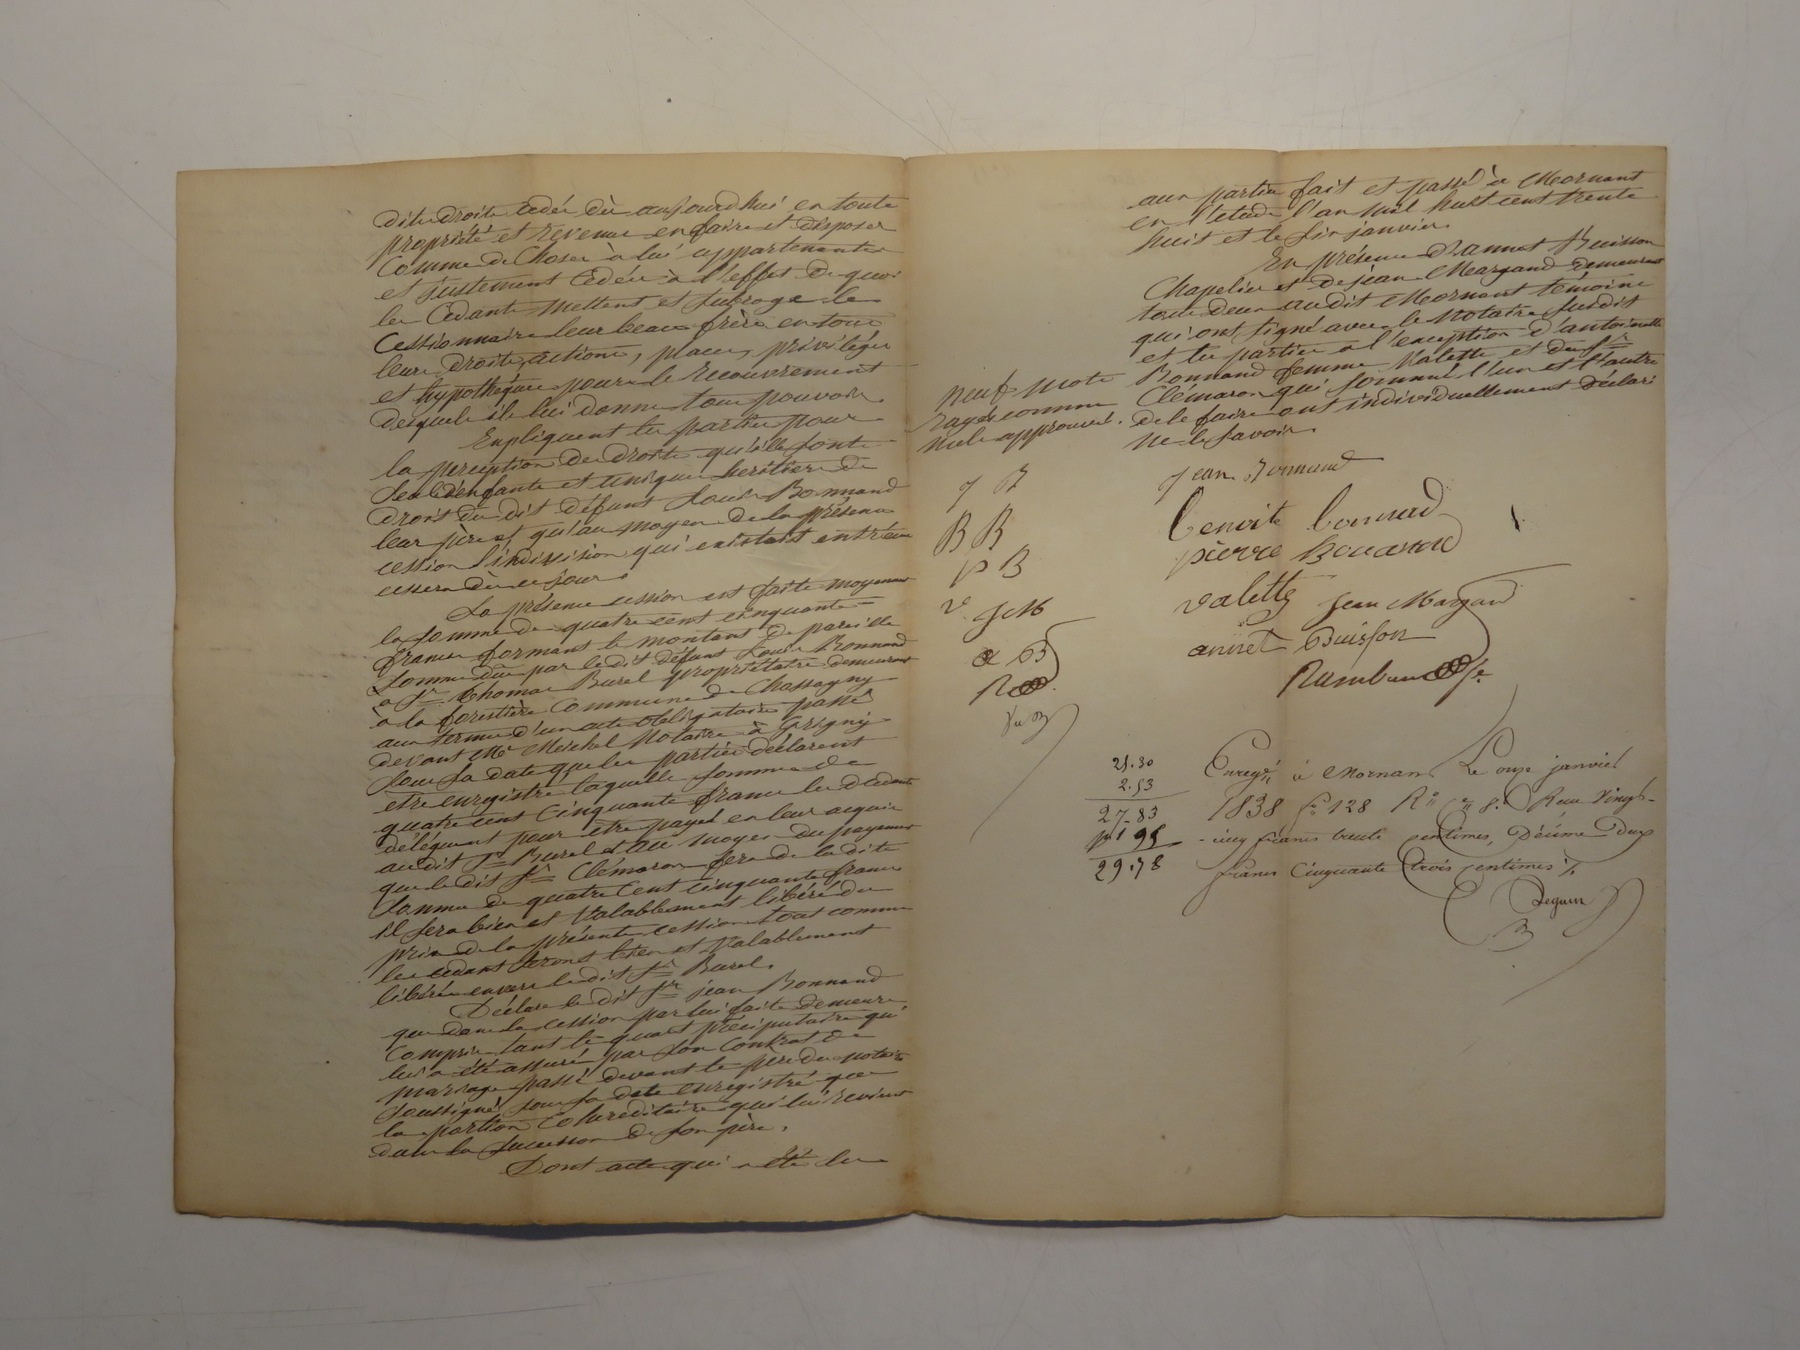 dits droits cédés dès aujourdhui en toute
propriété et revenu en faire et disposer
comme de choses à lui appartenantes
et justement cédées à l'effet de quoi
les cédants mettent et subroge le
cessionnaire leur beau frère en tous
leurs droits, actions, places, privilèges
et hypothèques pour le recouvrement
desquels ils lui donne tous pouvoirs.
Expliquent les parties pour
la perception des droits qu'elles sont
seules enfants et uniques heritiers de
droit du dit défunt Louis Bonnand
leur pere et qu'au moyen de la présente
cession l'indivision qui existait entr'eux
cessera dès ce jour.
La présente cession est faite moyennant
la somme de quatre cent cinquante
francs formant le montant de pareille
somme due par le dit défunt Louis Bonnand
à Sr. Thomas Burel propriétaire demeurant
à la forestière commune de Chassagny
aux termes d'un acte obligatoire passé
devant Me Meichel Notaire à Grigny
sous sa date que les parties déclarent
être enregistré laquelle somme de
quatre cent cinquante francs les cédants
délèguent pour être payée en leur acquit
au dit Sr Burel et au moyen du payement
que le dit Sr Clémaron fera de la dite
somme de quatre cent cinquante francs
il sera bien et valablement libéré du
prix de la présente cession tout comme
les cédants seront bien et valablement
libérés envers le dit Sr Burel.
Déclare le dit Sr jean Bonnand
que dans la cession par lui faite demeure
comprise tant le quart préciputaire qui
lui a été assuré par son contrat de
mariage passé devant le père du notaire
soussigné sous sa date enregistré que
la portion cohéréditaire qui lui revient
dans la succession de son père.
Dont acte qui a été lu
aux parties fait et passé à Mornant
en l'étude l'an mil huit cent trente
huit et le six janvier.
En présence d'annet Buisson
Chapelier et de jean Margand demeurant
tous deux au dit Mornant témoins
qui ont signé avec le Notaire susdit
et les parties à l'exception d'antoinette
Bonnand femme Valette et du Sr
Clémaron qui sommés l'un et l'autre
de le faire ont individuellement déclaré
ne le savoir.
neuf mots
rayés comme
nuls approuvés.
J B
B B
p B
v.
J M
a B
R
jean Bonnand
Benoite bonnard
pierre Bonnand
valette Jean Margand
annet Buisson
Rambaud
25.30
2.53
27.83
1 95
29.78
Enregé à Mornant Le onze janvier
1838 fo 128 Ro Ce 8. Reçu Vingt-
-cinq francs trente centimes, Décime deux
francs cinquante trois centimes ./.
Seguin